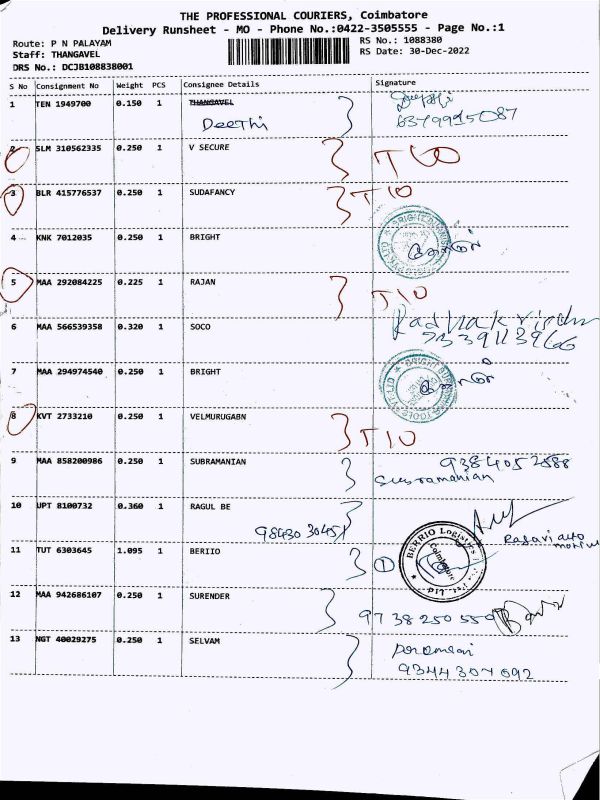 THE PROFESSIONAL COURIERS, Coimbatore
Delivery Runsheet - MO - Phone No.:0422-3505555 - Page No.:1
Route: P N PALAYAM RS No.: 1088380
Staff: THANGAVEL RS Date: 30-Dec-2022
DRS No.: DCJB108838001
S No Consignment No Weight PCS Consignee Details Signature
1 TEN 1949700 0.150 1 THANGAVEL
Deethi 6379995087
2 SLM 310562335 0.250 1 V SECURE T10
3 BLR 415776537 0.250 1 SUDAFANCY T10
4 KNK 7012035 0.250 1 BRIGHT
5 MAA 292084225 0.225 1 RAJAN T10
6 MAA 566539358 0.320 1 SOCO
7 MAA 294974540 0.250 1 BRIGHT
8 KVT 2733210 0.250 1 VELMURUGABN T10
9 MAA 858200986 0.250 1 SUBRAMANIAN 9384052588
Subramanian
10 UPT 8100732 0.360 1 RAGUL BE
11 TUT 6303645 1.095 1 BERIIO 1 BERRIO Logistics Coimbatore
12 MAA 942686107 0.250 1 SURENDER
9738250550
13 NGT 40029275 0.250 1 SELVAM
9344307092